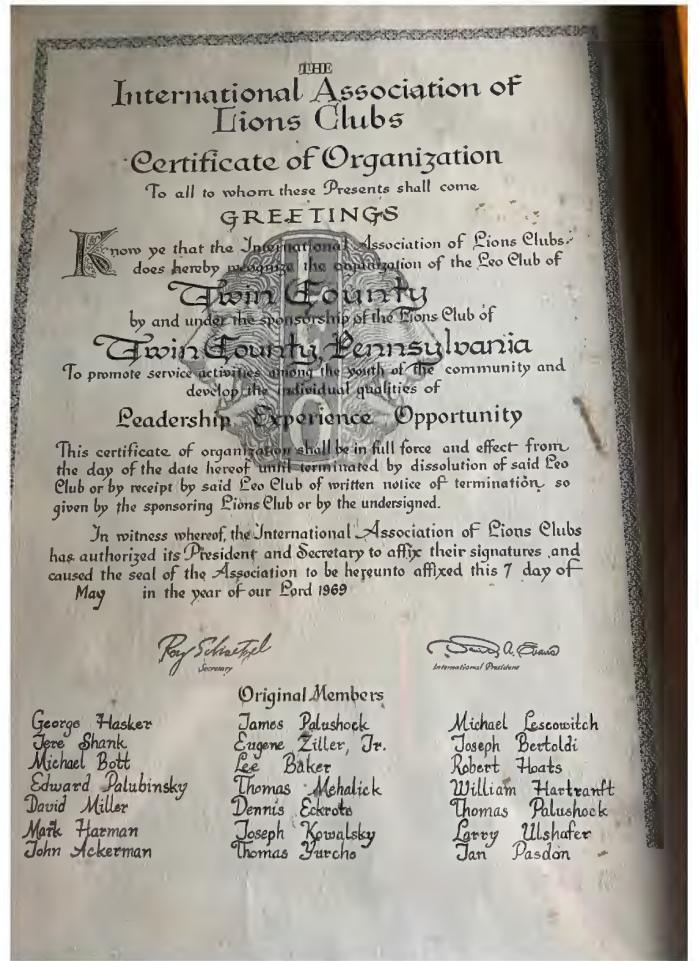 THE
International Association of
Lions Clubs
Certificate of Organization
To all to whom these Presents shall come
GREETINGS
Know ye that the International Association of Lions Clubs
does hereby recognize the organization of the Leo Club of
Twin County
by and under the sponsorship of the Lions Club of
Twin County, Pennsylvania
To promote service activities among the youth of the community and
develop the individual qualities of
Leadership Experience Opportunity
This certificate of organization shall be in full force and effect from
the day of the date hereof until terminated by dissolution of said Leo
Club or by receipt by said Leo Club of written notice of termination, so
given by the sponsoring Lions Club or by the undersigned.
In witness whereof, the International Association of Lions Clubs
has authorized its President and Secretary to affix their signatures and
caused the seal of the Association to be hereunto affixed this 7 day of
May in the year of our Lord 1969
Roy Schaetzel
Secretary
A. Evans
International President
Original Members
George Hasker
Jere Shank
Michael Bott
Edward Palubinsky
David Miller
Mark Harman
John Ackerman
James Palushock
Eugene Ziller, Jr.
Lee Baker
Thomas Mehalick
Dennis Eckrote
Joseph Kowalsky
Thomas Yurcho
Michael Lescowitch
Joseph Bertoldi
Robert Hoats
William Hartranft
Thomas Palushock
Larry Ulshafer
Jan Pasdon